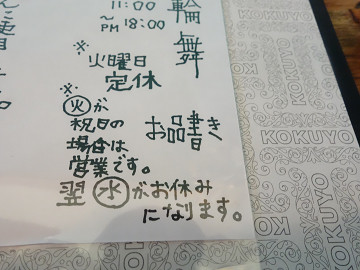 輪舞
お品書き
11:00
～
PM 18:00
※火曜日
定休
※
㊋が
祝日の
場合は
営業です。
翌㊌がお休み
になります。
KOKUYO
KOKUYO
KOKUYO